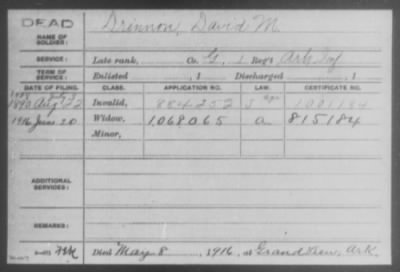 DEAD
NAME OF SOLDIER: Drinnon, David M.
SERVICE: Late rank, Co. G, 1 Reg't Ark Inf
TERM OF SERVICE: Enlisted , 1 Discharged , 1
DATE OF FILING. CLASS. APPLICATION NO. LAW. CERTIFICATE NO.
Aug 22 Invalid, 884252 1001184
1916 Jun 20 Widow, 1,068,065 a 815184
Minor,
ADDITIONAL SERVICES:
REMARKS:
Died May 8, 1916, at Grandview, Ark.